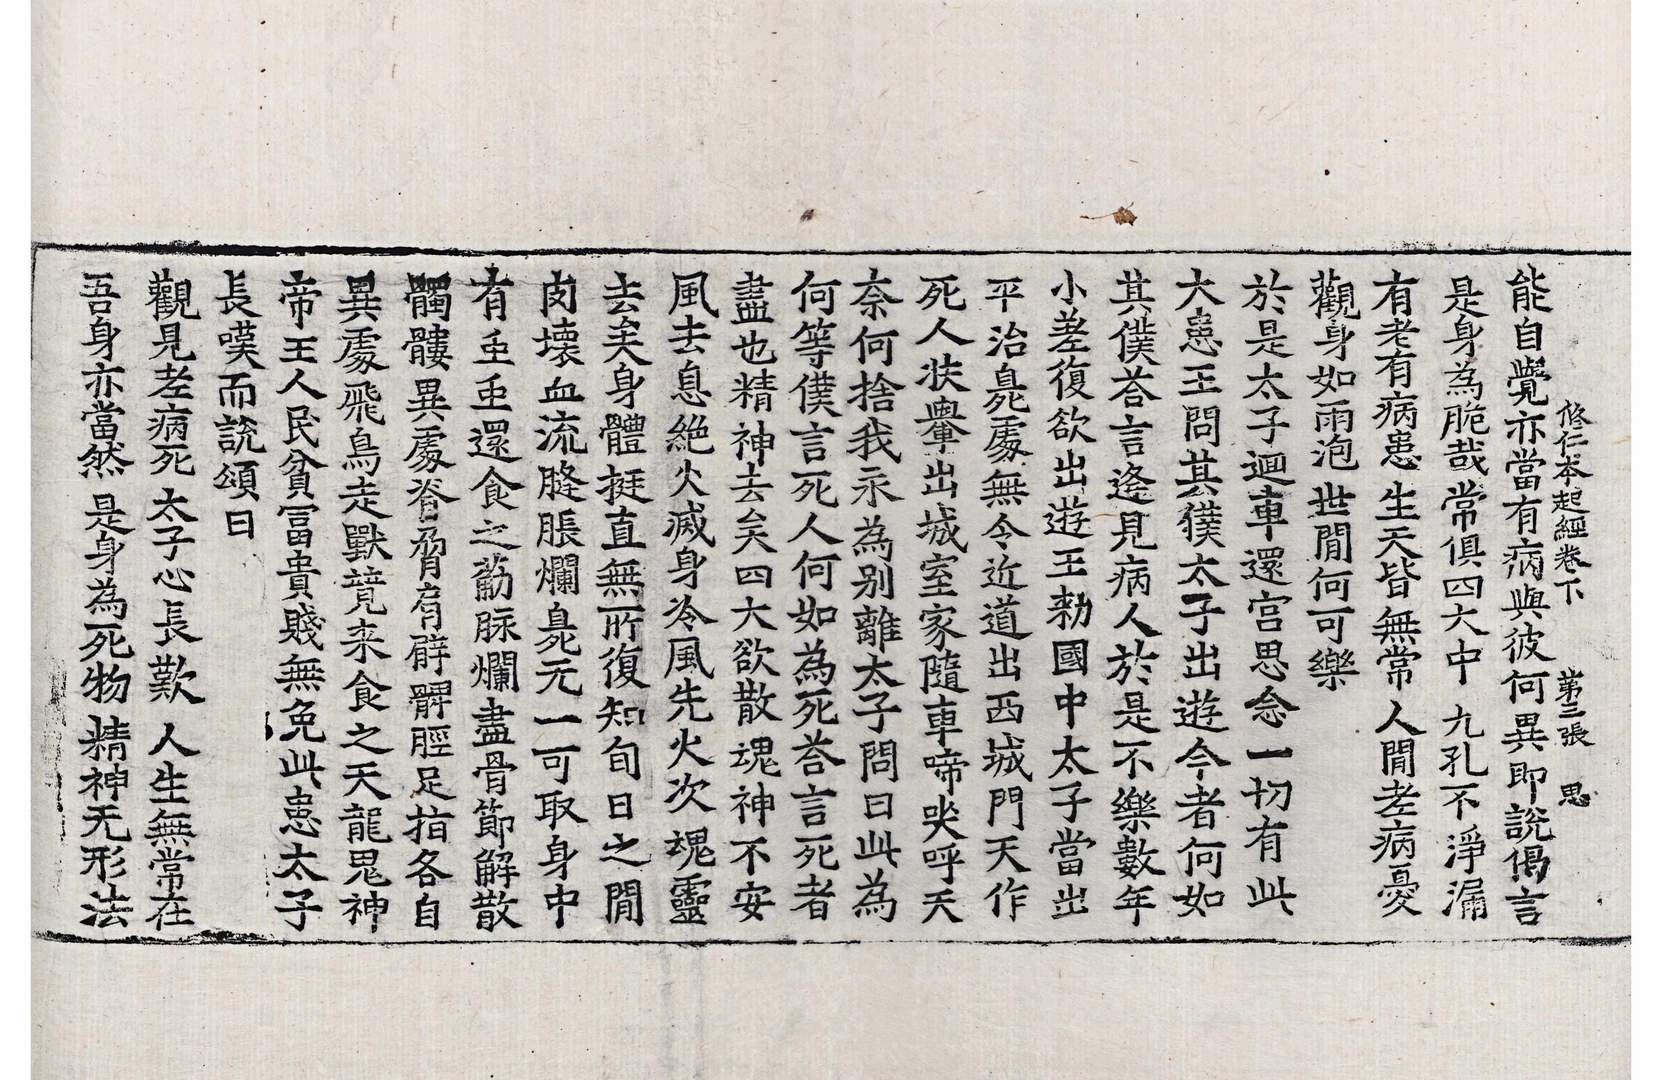 修仁本起經卷下　第三張　思
能自覺亦當有病與彼何異即說偈言
是身為脆哉　常俱四大中　九孔不淨漏
有老有病患　生天皆無常　人閒老病憂
觀身如雨泡　世閒何可樂
於是太子迴車還宮思念一切有此
大患王問其僕太子出遊今者何如
其僕荅言逢見病人於是不樂數年
小差復欲出遊王勑國中太子當出
平治臭處無令近道出西城門天作
死人扶轝出城室家隨車啼哭呼天
奈何捨我永為別離太子問曰此為
何等僕言死人何如為死荅言死者
盡也精神去矣四大欲散魂神不安
風去息絕火滅身冷風先火次魂靈
去矣身體挺直無所復知旬日之閒
肉壞血流膖脹爛臭无一可取身中
有虫虫還食之筋脉爛盡骨節解散
髑髏異處脊脅肩臂髀脛足指各自
異處飛鳥走獸競来食之天龍鬼神
帝王人民貧冨貴賤無免此患太子
長嘆而說頌曰
觀見老病死　太子心長歎　人生無常在
吾身亦當然　是身為死物　精神无形法